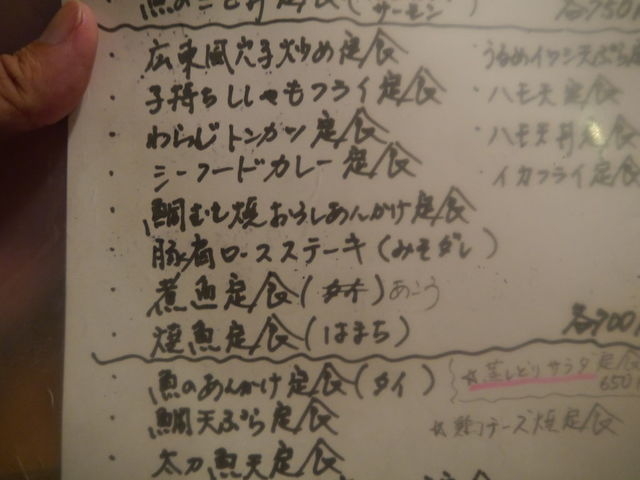 魚の 丼定食(サーモン)
各750
・広東風穴子炒め定食
・子持ちししゃもフライ定食
・わらじトンカツ定食
・シーフードカレー定食
・鯛むむ焼おろしあんかけ定食
・豚肩ロースステーキ(みそダレ)
・煮魚定食( )あこう
・焼魚定食(はまち)
うるめイワシ天ぷら定
・ハモ天定食
・ハモ天丼定食
・イカフライ定食
各700
魚のあんかけ定食(タイ)
鯛天ぷら定食
太刀魚天定食
☆蒸しどりサラダ定食
650
☆ チーズ焼定食